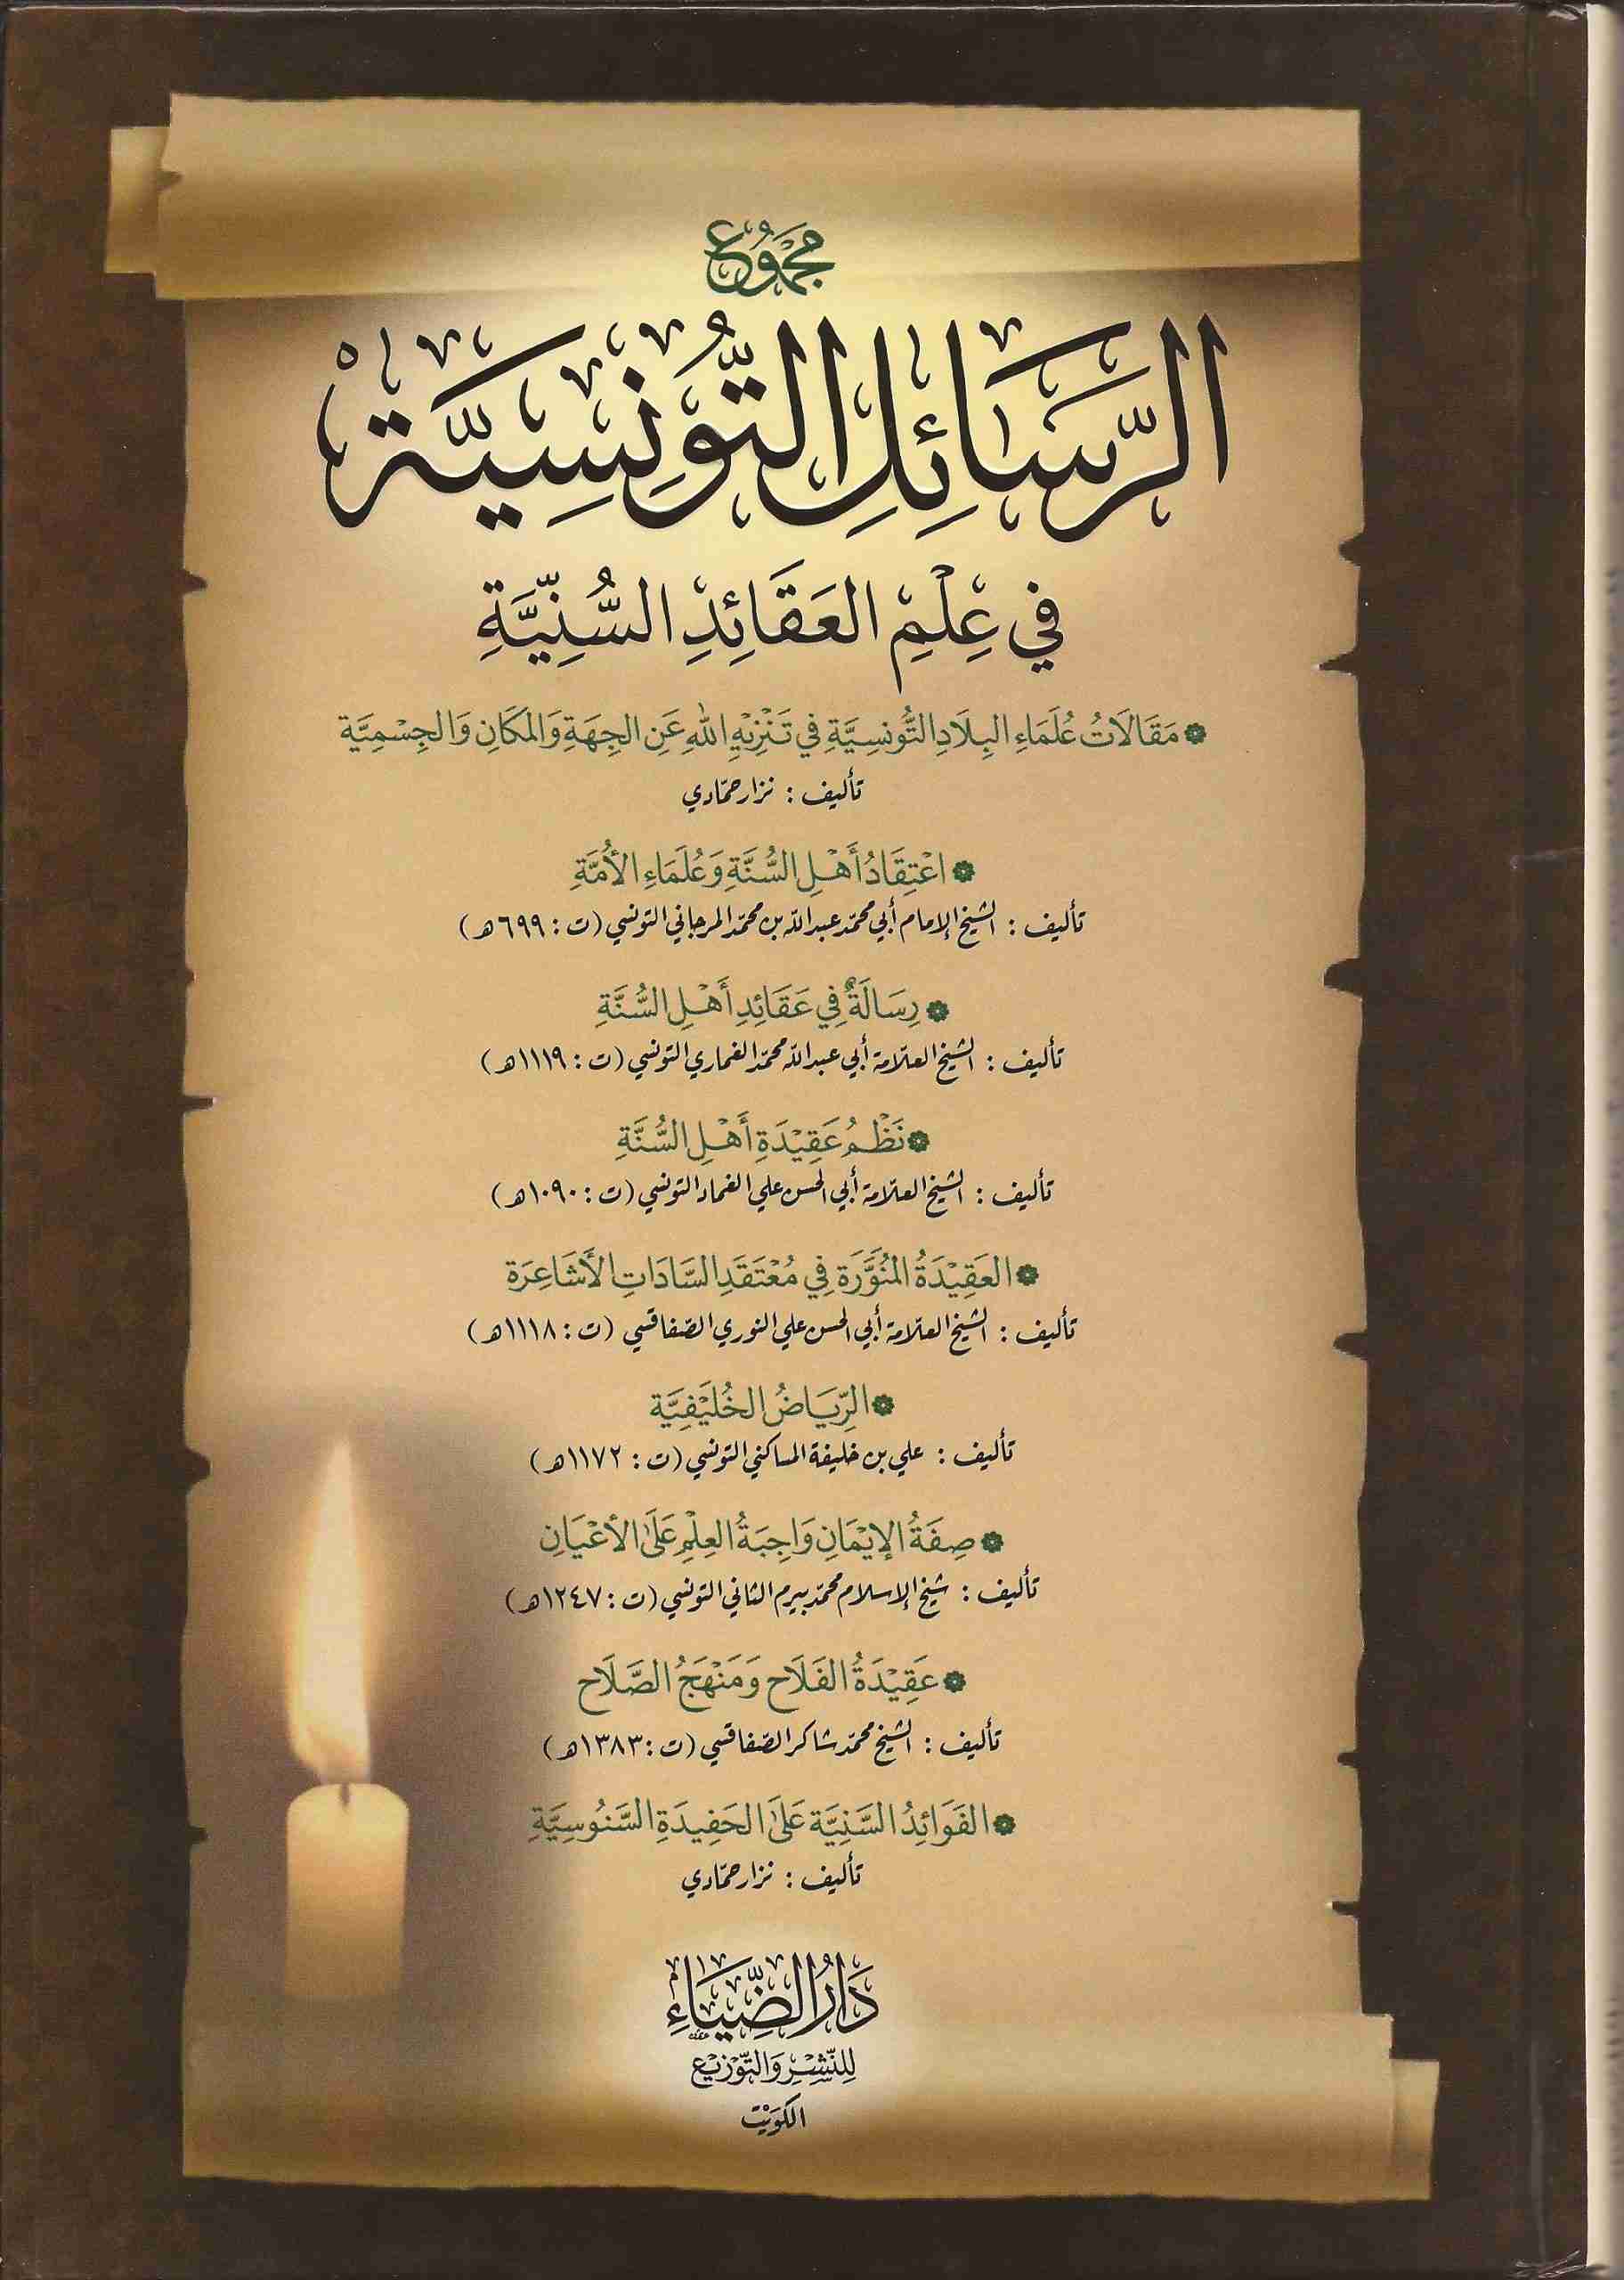 مَجْمُوعُ
الرَّسَائِلِ التُّونِسِيَّةِ
فِي عِلْمِ العَقَائِدِ السُّنِّيَّةِ
مَقَالَاتُ عُلَمَاءِ البِلَادِ التُّونِسِيَّةِ فِي تَنْزِيْهِ اللهِ عَنِ الجِهَةِ وَالمَكَانِ وَالجِسْمِيَّة
تأليف : نزار حمّادي
اعْتِقَادُ أَهْلِ السُّنَّةِ وَعُلَمَاءِ الأُمَّةِ
تأليف : الشيخ الإمام أبي محمّد عبد الله بن محمّد المرجاني التونسي (ت : ٦٩٩هـ)
رِسَالَةٌ فِي عَقَائِدِ أَهْلِ السُّنَّةِ
تأليف : الشيخ العلّامة أبي عبد الله محمّد الغماري التونسي (ت : ١١١٩هـ)
نَظْمُ عَقِيْدَةِ أَهْلِ السُّنَّةِ
تأليف : الشيخ العلّامة أبي الحسن علي الغماد التونسي (ت : ١٠٩٠هـ)
العَقِيْدَةُ المُنَوَّرَة فِي مُعْتَقَدِ السَّادَاتِ الأَشَاعِرَة
تأليف : الشيخ العلّامة أبي الحسن علي النوري الصّفاقسي (ت : ١١١٨هـ)
الرِّيَاضُ الخُلَيْفِيَّة
تأليف : علي بن خليفة المساكني التونسي (ت : ١١٧٢هـ)
صِفَةُ الإِيْمَانِ وَاجِبَةُ العِلْمِ عَلَى الأَعْيَانِ
تأليف : شيخ الإسلام محمّد بيرم الثاني التونسي (ت : ١٢٤٧هـ)
عَقِيْدَةُ الفَلَاح وَمَنْهَجُ الصَّلَاح
تأليف : الشيخ محمّد شاكر الصّفاقسي (ت : ١٣٨٣هـ)
الفَوَائِدُ السَّنِيَّة عَلَى الحَفِيدَةِ السَّنُوسِيَّةِ
تأليف : نزار حمّادي
دَارُ الضِّيَاءِ
لِلنَّشْرِ وَالتَّوْزِيْعِ
الكُوَيْت